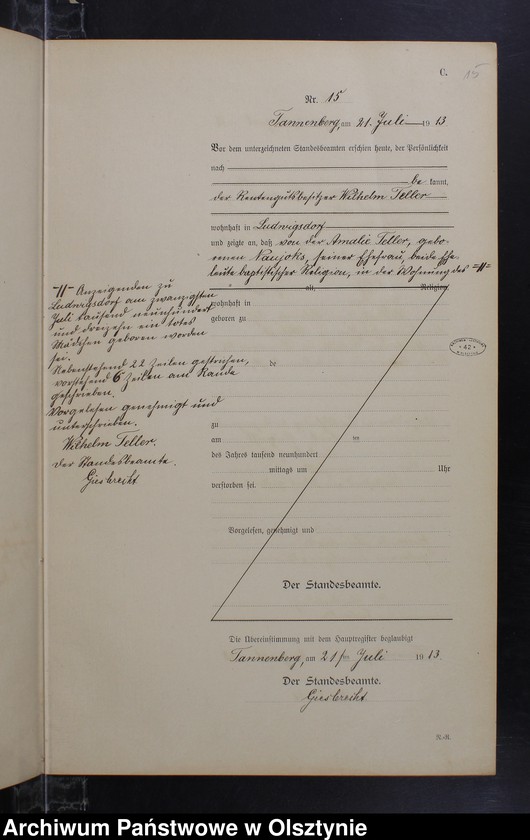 C.
15
Nr. 15
Tannenberg, am 21. Juli 1913
Vor dem unterzeichneten Standesbeamten erschien heute, der Persönlichkeit
nach
be kannt,
der Rentengutsbesitzer Wilhelm Teller
wohnhaft in Ludwigsdorf
und zeigte an, daß von der Amalie Teller, gebo-
renen Naujoks, seiner Ehefrau, beide Ehe-
leute baptistischer Religion, in der Wohnung des -//-
alt, Religion,
wohnhaft in
geboren zu
de
zu
am te
des Jahres tausend neunhundert
mittags um Uhr
verstorben sei.
Vorgelesen, genehmigt und
Der Standesbeamte.
-//- Anzeigenden zu
Ludwigsdorf am zwanzigsten
Juli tausend neunhundert
und dreizehn ein totes
Mädchen geboren worden
sei.
Nebenstehend 22 Zeilen gestrichen,
vorstehend 6 Zeilen am Rande
geschrieben.
Vorgelesen genehmigt und
unterschrieben.
Wilhelm Teller.
Der Standesbeamte.
Giesbrecht
42
Die Übereinstimmung mit dem Hauptregister beglaubigt
Tannenberg, am 21 ten Juli 1913.
Der Standesbeamte.
Giesbrecht
Archiwum Państwowe w Olsztynie